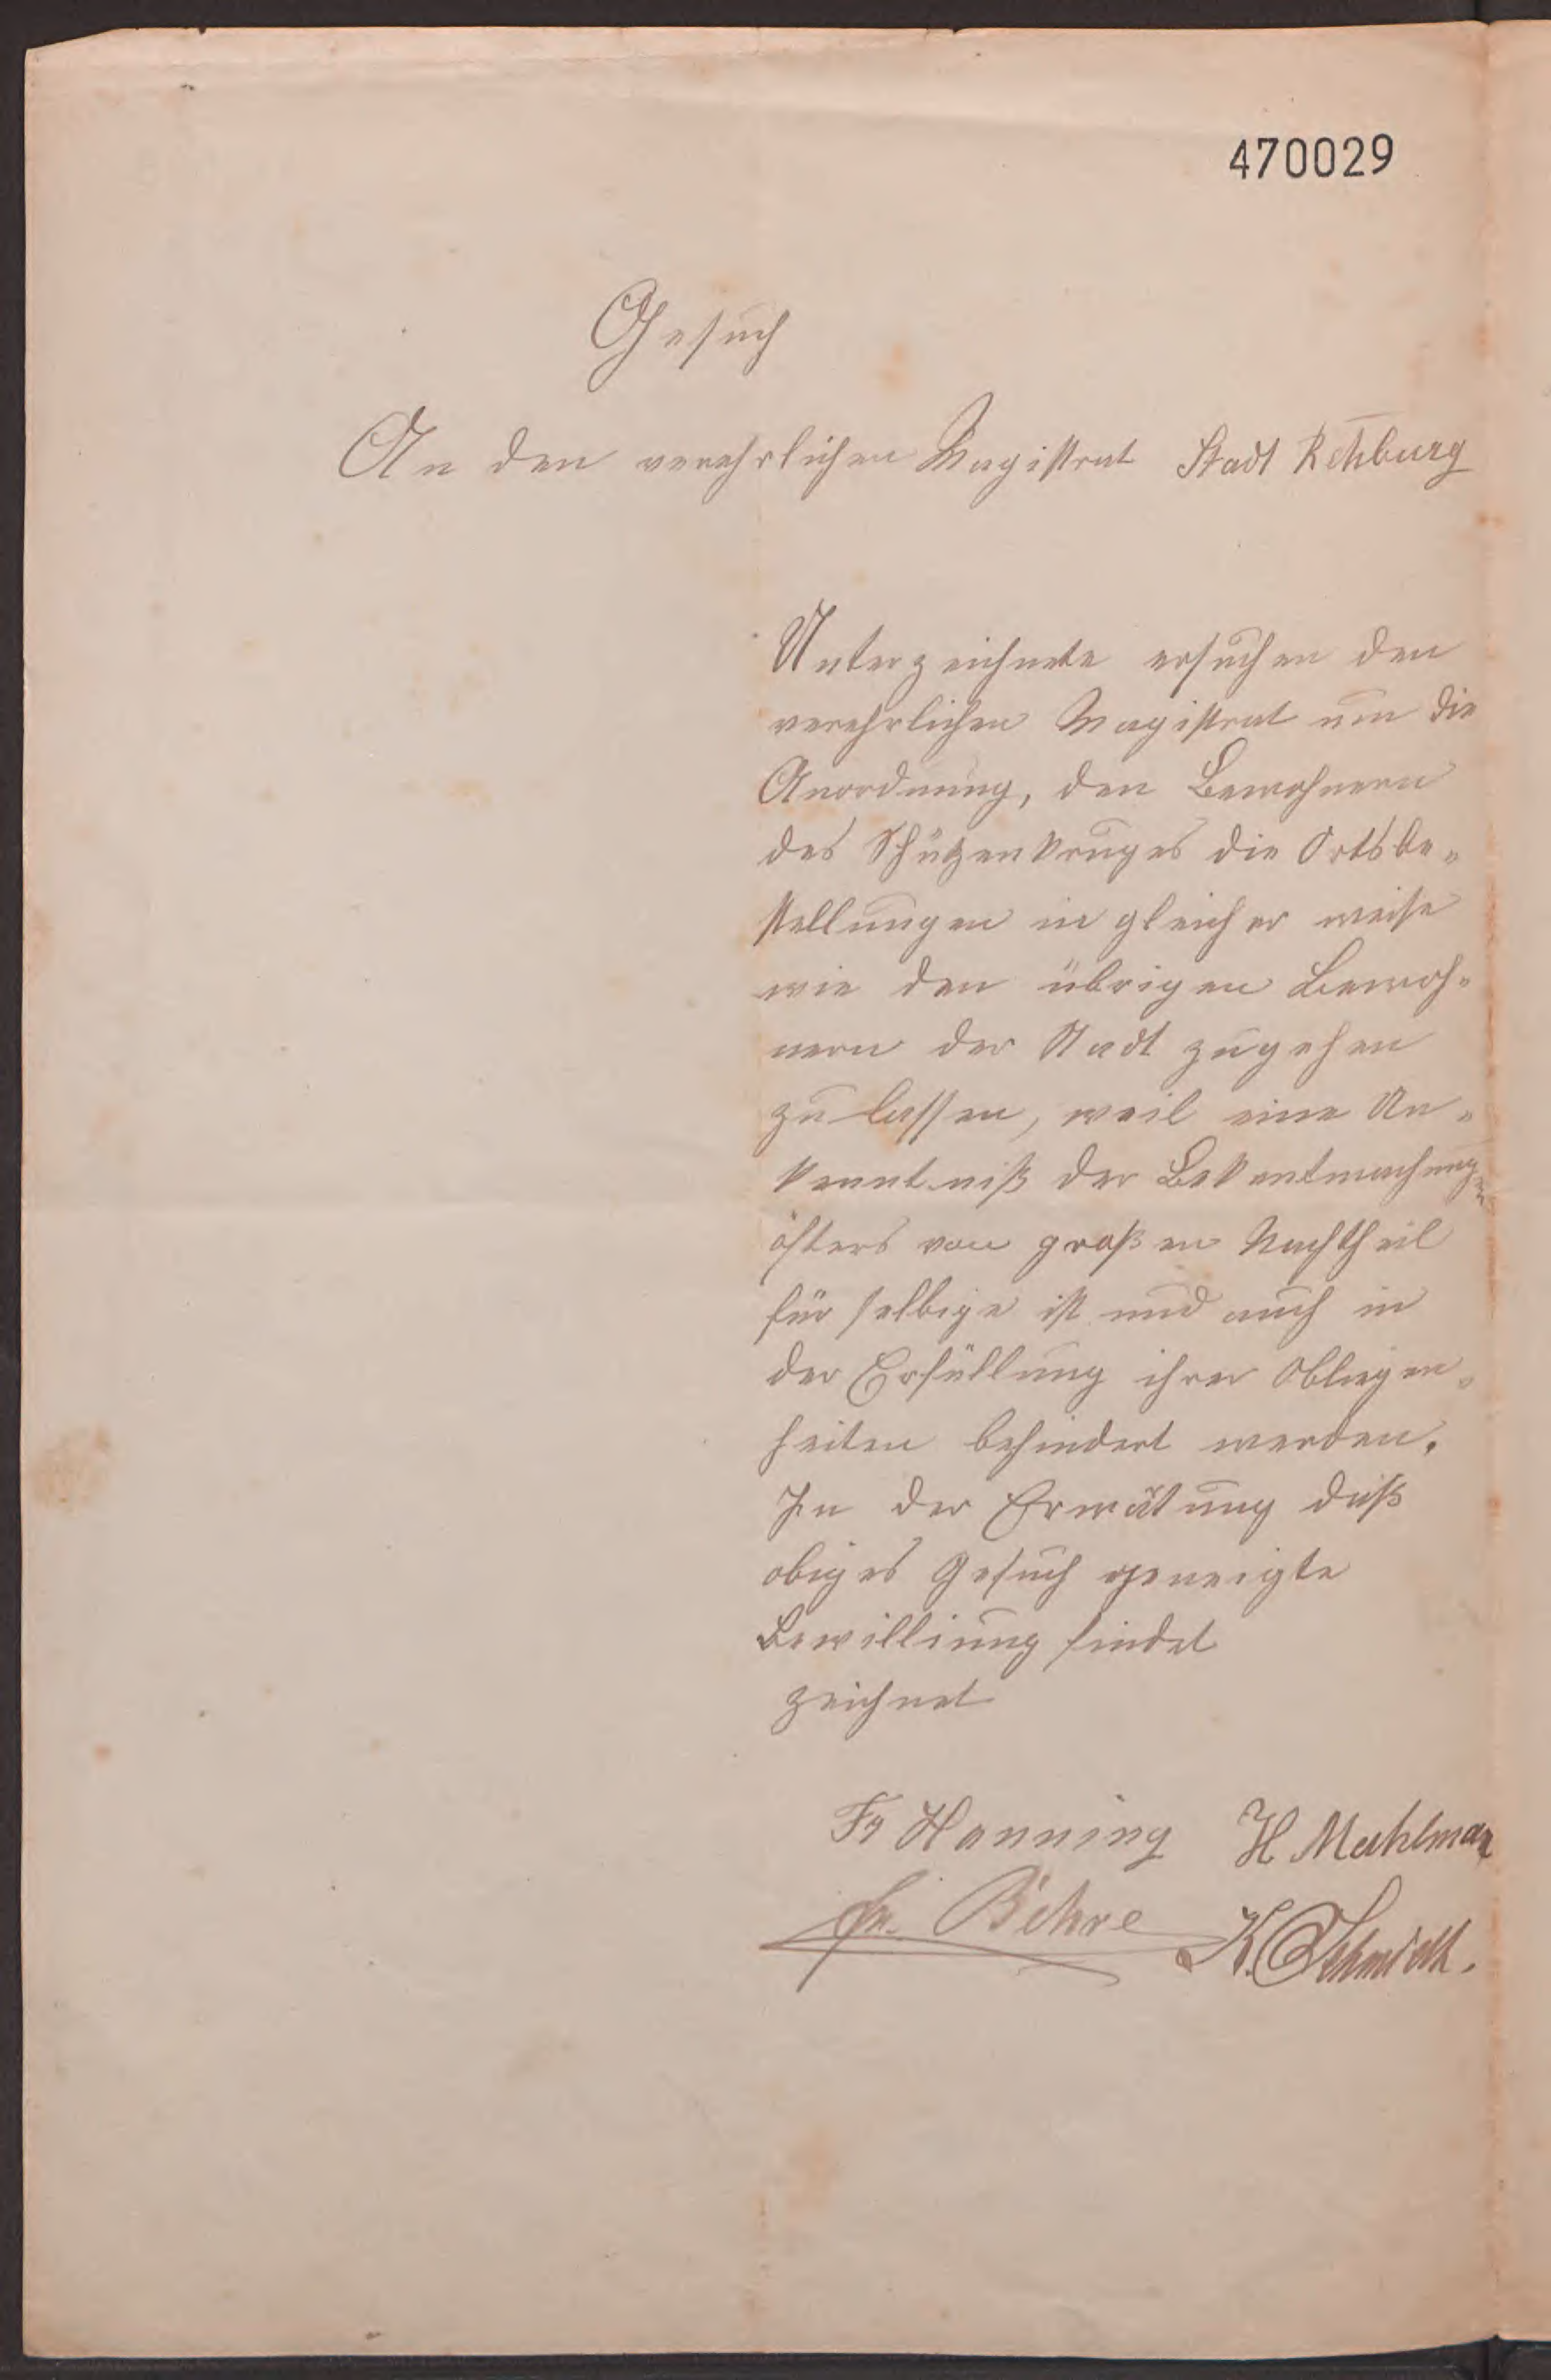 470029
Gesuch
An den verehrlichen Magistrat Stadt Rehburg
Unterzeichnete ersuchen den
verehrlichen Magistrat um die
Anordnung, den Bewohnern
des Schützenkruges die Ortsbe-
stellungen in gleicher weise
wie den übrigen Bewoh-
nern der Stadt zugehen
zu lassen, weil eine Un-
kenntniß der Bekentmachungen
öfters von großen Nachtheil
für selbige ist und auch in
der Erfüllung ihrer Obliegen-
heiten behindert werden.
In der Erwätung daß
obiges Gesuch geneigte
Bewilliung findet
zeichnet
Fr Hanning H Mahlman
Fr. Behre K. Schmidt.